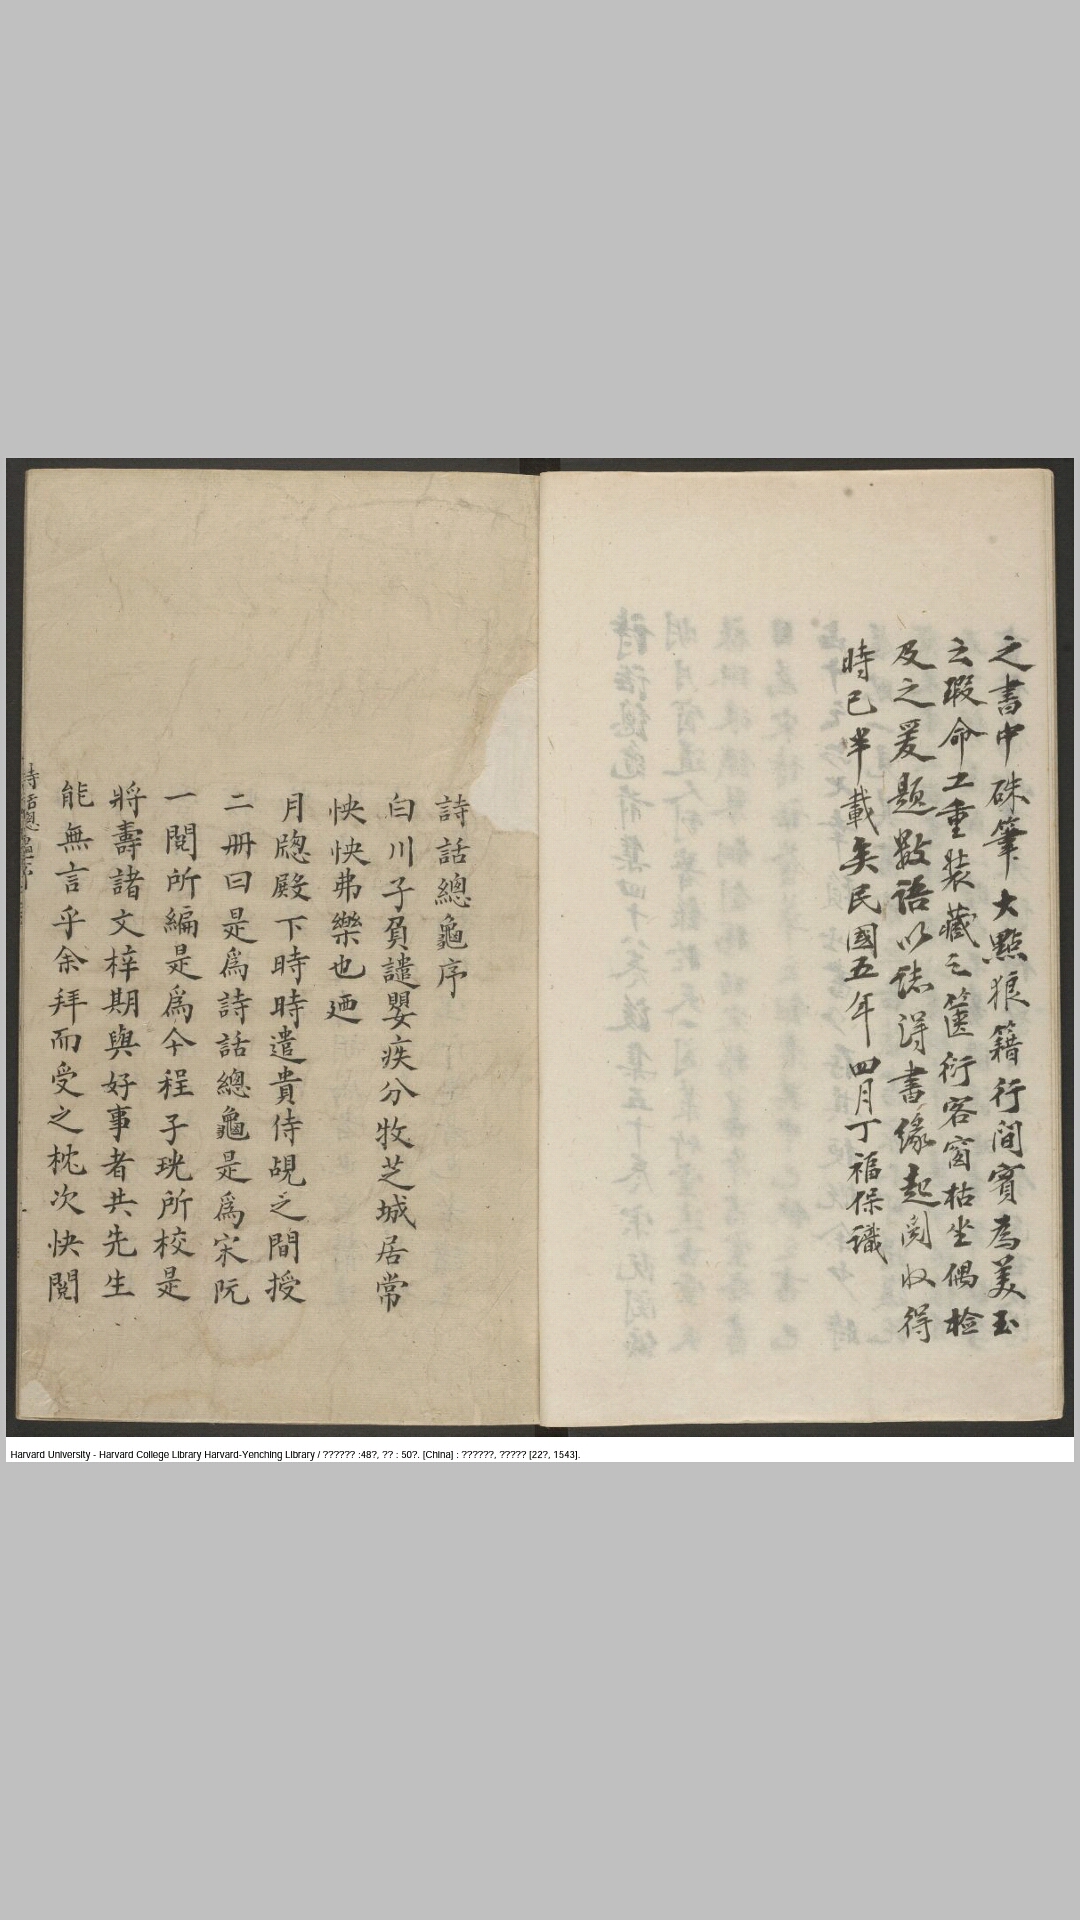 之書中硃筆大點狼籍行間賓為美玉
云瑕命工重裝藏之篋衍客窗枯坐偶檢
及之爰題數語以誌得書緣起閱收得
時已半載矣民國五年四月丁福保識
詩話總龜序
白川子負譴嬰疾分牧芝城居常
怏怏弗樂也迺
月牕殿下時時遣貴侍覘之間授
二册曰是爲詩話總龜是爲宋阮
一閱所編是爲今程子珖所校是
將壽諸文梓期與好事者共先生
能無言乎余拜而受之枕次快閱
詩話總龜序
Harvard University - Harvard College Library Harvard-Yenching Library / ?????? :48?, ?? : 50?. [China] : ??????, ????? [22?, 1543].